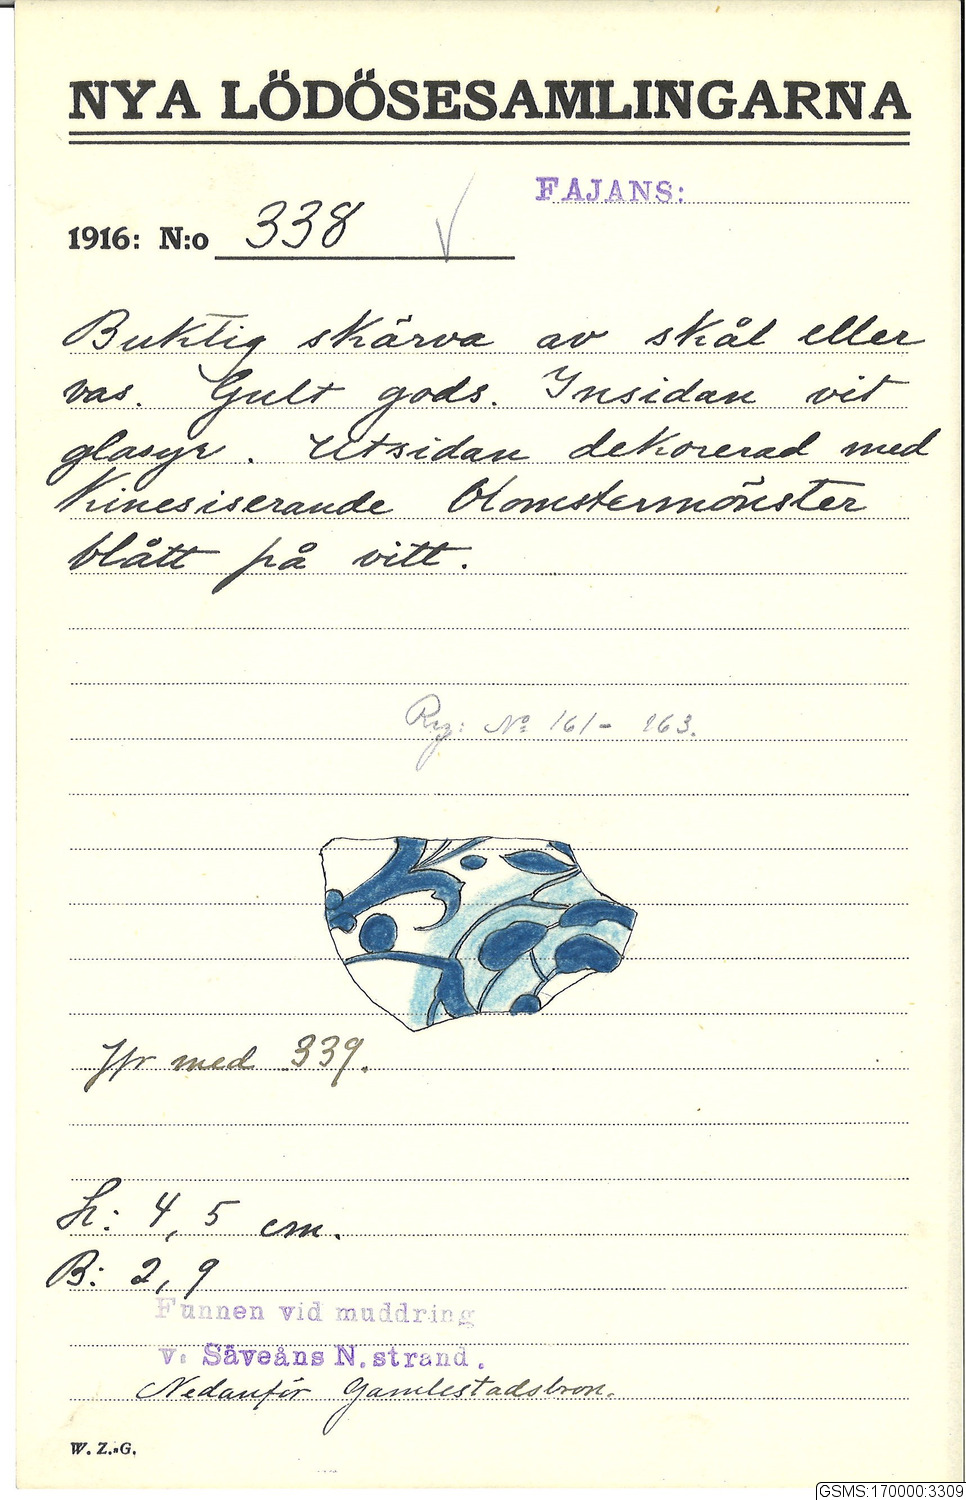 NYA LÖDÖSESAMLINGARNA
FAJANS:
1916: N:o 338
Buktig skärva av skål eller
vas. Gult gods. Insidan vit
glasyr. Utsidan dekorerad med
kinesiserande blomstermönster
blått på vitt.
Rg: No 161- 163.
Jfr med 339.
L: 4,5 cm.
B: 2,9
Funnen vid muddring
v. Säveåns N. strand.
Nedanför Gamlestadsbron.
W. Z.-G.
GSMS:170000:3309